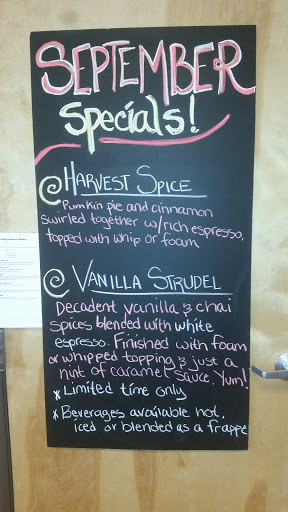 SEPTEMBER
Specials!
HARVEST SPICE
Pumkin pie and cinnamon
swirled together w/rich espresso,
topped with whip or foam
VANILLA STRUDEL
Decadent vanilla & chai
spices blended with white
espresso. Finished with foam
or whipped topping & just a
hint of caramel sauce. Yum!
* Limited time only
* Beverages available hot,
iced or blended as a frappe